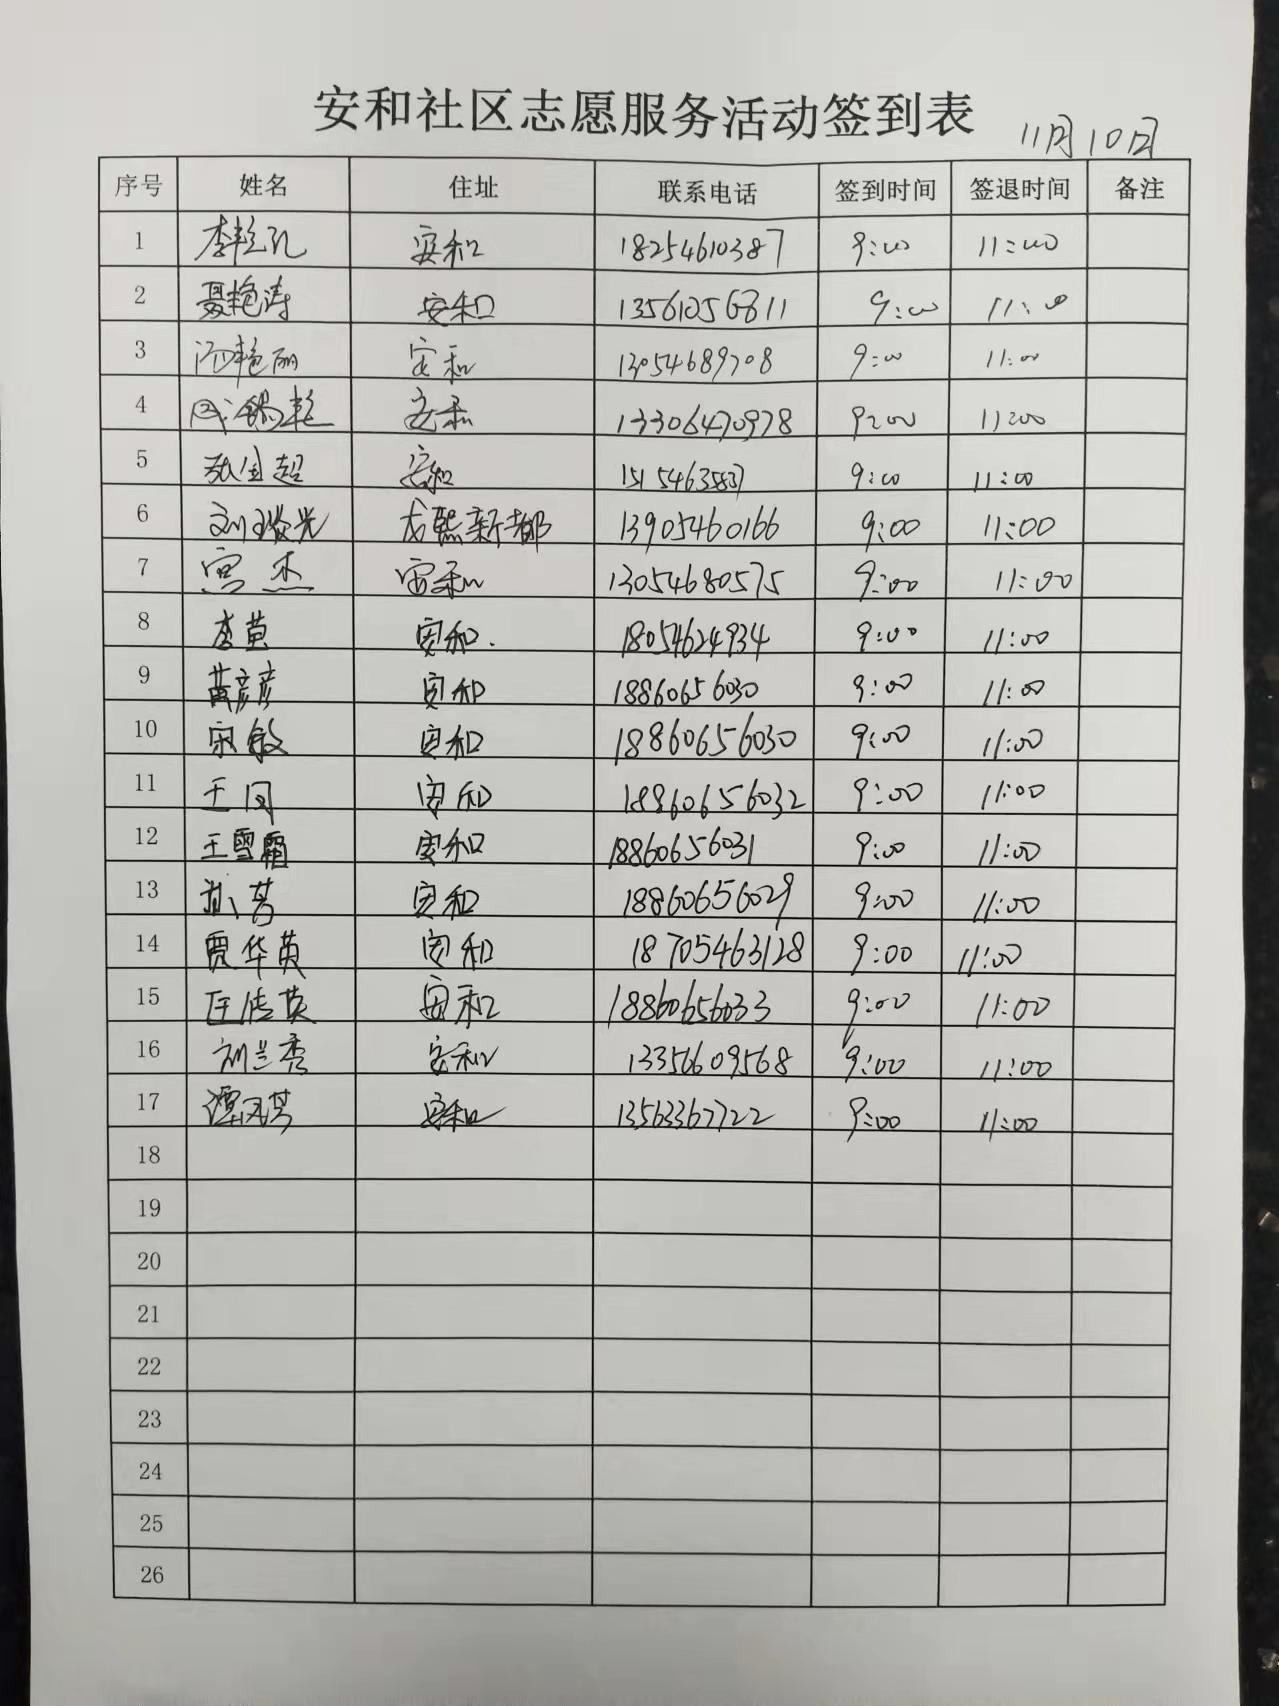 安和社区志愿服务活动签到表
11月10日
序号 姓名 住址 联系电话 签到时间 签退时间 备注
1 李艳孔 安和 18254610387 9:00 11:00
2 聂艳涛 安和 13561056811 9:00 11:00
3 艳丽 安和 13054689708 9:00 11:00
4 安和 13306470978 9:00 11:00
5 张国超 安和 9:00 11:00
6 刘 光 龙熙新都 13905460166 9:00 11:00
7 宫杰 安和 13054680575 9:00 11:00
8 李黄 安和. 18054624934 9:00 11:00
9 黄彦彦 安和 18860656030 9:00 11:00
10 宋敏 安和 18860656030 9:00 11:00
11 王 安和 18860656032 9:00 11:00
12 王雪霜 安和 18860656031 9:00 11:00
13 安和 18860656029 9:00 11:00
14 贾华英 安和 18705463128 9:00 11:00
15 安和 18860656033 9:00 11:00
16 刘兰秀 安和 13356609568 9:00 11:00
17 谭凤芹 安和 13563367722 9:00 11:00
18
19
20
21
22
23
24
25
26